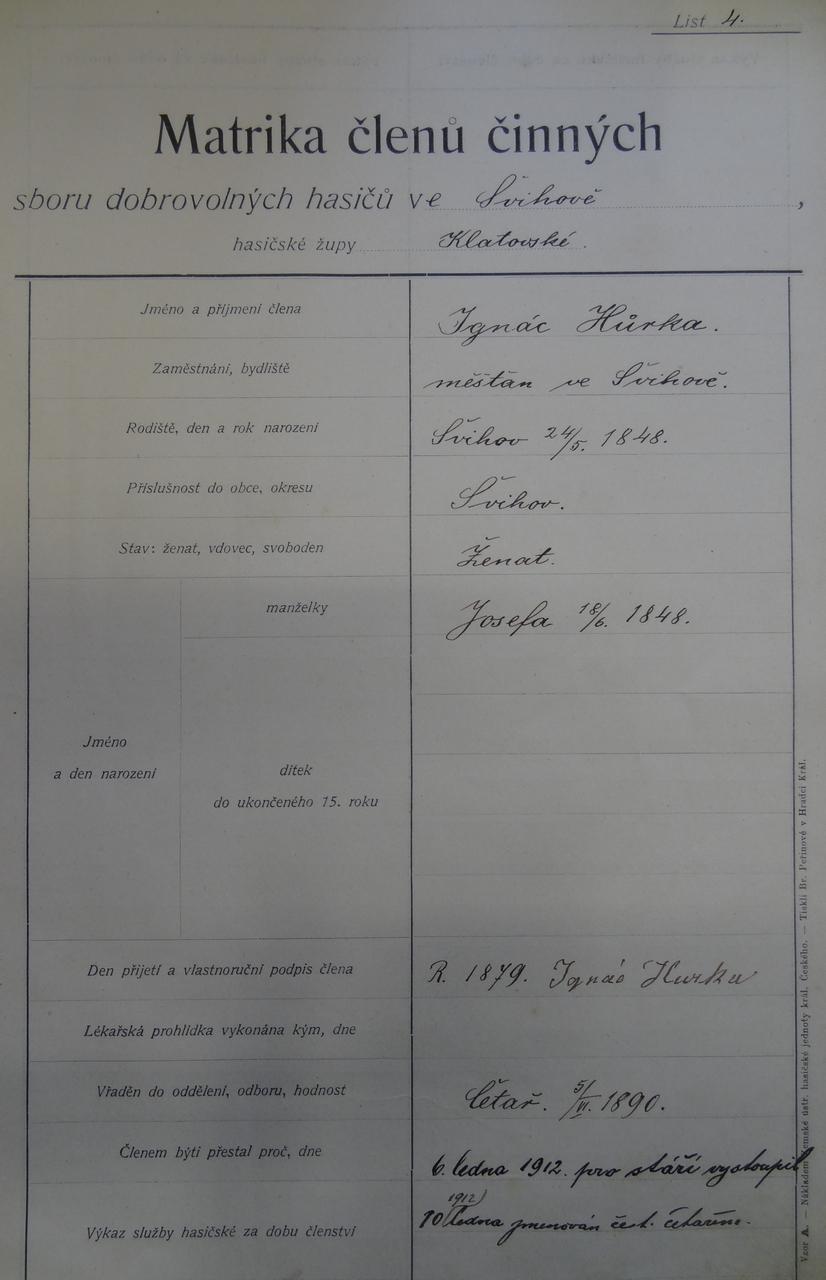 List 4.
Matrika členů činných
sboru dobrovolných hasičů ve Švihově,
hasičské župy Klatovské.
Jméno a příjmení člena Ignác Hůrka.
Zaměstnání, bydliště měšťan ve Švihově.
Rodiště, den a rok narození Švihov 24/5. 1848.
Příslušnost do obce, okresu Švihov.
Stav: ženat, vdovec, svoboden Ženat.
manželky Josefa 18/6. 1848.
Jméno
a den narození
dítek
do ukončeného 15. roku
Den přijetí a vlastnoruční podpis člena R. 1879. Ignác Hurka
Lékařská prohlídka vykonána kým, dne
Vřaděn do oddělení, odboru, hodnost Četař. 5/VI. 1890.
Členem býti přestal proč, dne 6. ledna 1912. pro stáří vystoupil
1912)
Výkaz služby hasičské za dobu členství 10 ledna jmenován čest. četařem.
Vzor A. — Nákladem zemské ústř. hasičské jednoty král. Českého. — Tiskli Br. Peřinové v Hradci Král.